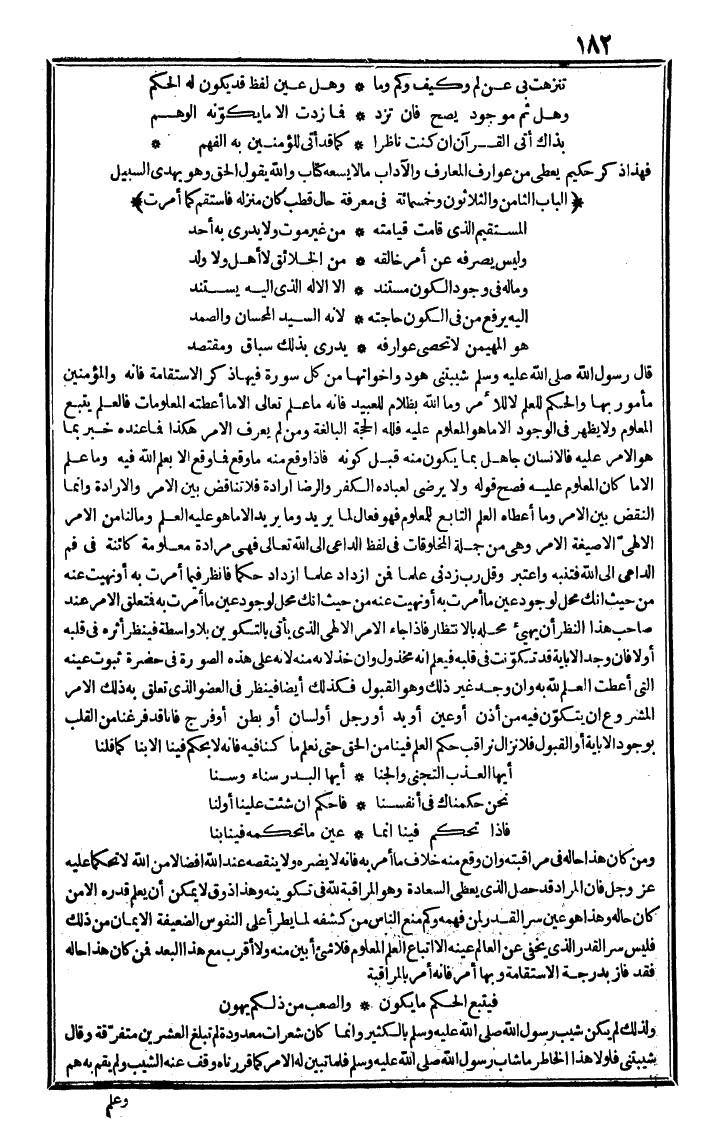 ١٨٢
تنزهت بى عن لم وكيف وكم وما * وهل عين لفظ قد يكون له الحكم
وهل ثم موجود يصح فان تزد * فما زدت الا ما يكوّنه الوهم
بذاك أتى القرآن ان كنت ناظرا * كما قد أتى للمؤمنين به الفهم *
فهذا ذكر حكيم يعطى من عوارف المعارف والآداب مالا يسعه كتاب والله يقول الحق وهو يهدى السبيل
﴿الباب الثامن والثلاثون وخمسمائة فى معرفة حال قطب كان منزله فاستقم كما أمرت﴾
المستقيم الذى قامت قيامته * من غير موت ولا يدرى به أحد
وليس يصرفه عن أمر خالقه * من الخلائق لا أهل ولا ولد
وماله فى وجود الكون مستند * الا الاله الذى اليه يستند
اليه يرفع من فى الكون حاجته * لانه السيد المحسان والصمد
هو المهيمن لا تحصى عوارفه * يدرى بذلك سباق ومقتصد
قال رسول الله صلى الله عليه وسلم شيبتنى هود واخواتها من كل سورة فيها ذكر الاستقامة فانه والمؤمنين
مأمور بها والحكم للعلم لا للامر وما الله بظلام للعبيد فانه ما علم تعالى الا ما أعطته المعلومات فالعلم يتبع
المعلوم ولا يظهر فى الوجود الا ما هو المعلوم عليه فلله الحجة البالغة ومن لم يعرف الامر هكذا فما عنده خبر بما
هو الامر عليه فالانسان جاهل بما يكون منه قبل كونه فاذا وقع منه ما وقع فما وقع الا بعلم الله فيه وما علم
الا ما كان المعلوم عليه فصح قوله ولا يرضى لعباده الكفر والرضا ارادة فلا تناقض بين الامر والارادة وانما
النقض بين الامر وما أعطاه العلم التابع للمعلوم فهو فعال لما يريد وما يريد الا ما هو عليه العلم ومالنا من الامر
الالهىّ الا صيغة الامر وهى من جملة المخلوقات فى لفظ الداعى الى الله تعالى فهى مرادة معلومة كائنة فى فم
الداعى الى الله فتنبه واعتبر وقل رب زدنى علما فمن ازداد علما ازداد حكما فانظر فيما أمرت به أو نهيت عنه
من حيث انك محل لوجود عين ما أمرت به أو نهيت عنه من حيث انك محل لوجود عين ما أمرت به فتعلق الامر عند
صاحب هذا النظر أن يهيئ محله بالانتظار فاذا جاء الامر الالهى الذى يأتى بالتكوين بلا واسطة فينظر أثره فى قلبه
أولا فان وجد الاباية قد تكوّنت فى قلبه فيعلم انه مخذول وان خذلانه منه لانه على هذه الصورة فى حضرة ثبوت عينه
التى أعطت العلم لله به وان وجد غير ذلك وهو القبول فكذلك أيضا فينظر فى العضو الذى تعلق به ذلك الامر
المشروع ان يتكوّن فيه من أذن أو عين أو يد أو رجل أو لسان أو بطن أو فرج فانا قد فرغنا من القلب
بوجود الاباية أو القبول فلا نزال نراقب حكم العلم فينا من الحق حتى نعلم ما كنا فيه فانه لا يحكم فينا الا بنا كما قلنا
أيها العذب التجنى والجنا * أيها البدر سناء وسنا
نحن حكمناك فى أنفسنا * فاحكم ان شئت علينا أو لنا
فاذا تحكم فينا انما * عين ما تحكمه فينا بنا
ومن كان هذا حاله فى مراقبته وان وقع منه خلاف ما أمر به فانه لا يضره ولا ينقصه عند الله افضالا من الله لا تحكما عليه
عز وجل فان المراد قد حصل الذى يعطى السعادة وهو المراقبة لله فى تكوينه وهذا ذوق لا يمكن أن يعلم قدره الا من
كان حاله وهذا هو عين سر القدر لمن فهمه وكم منع الناس من كشفه لما يطرأ على النفوس الضعيفة الايمان من ذلك
فليس سر القدر الذى يخفى عن العالم عينه الا اتباع العلم المعلوم فلا شئ أبين منه ولا أقرب مع هذا البعد فمن كان هذا حاله
فقد فاز بدرجة الاستقامة وبها أمر فانه أمر بالمراقبة
فيتبع الحكم ما يكون * والصعب من ذلكم يهون
ولذلك لم يكن شيب رسول الله صلى الله عليه وسلم بالكثير وانما كان شعرات معدودة لم تبلغ العشرين متفرّقة وقال
شيبتنى فلولا هذا الخاطر ما شاب رسول الله صلى الله عليه وسلم فلما تبين له الامر كما قررناه وقف عنه الشيب ولم يقم به هم
وعلم